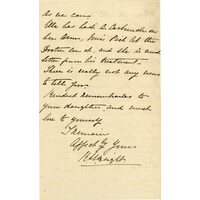 as we can
She has had a Carbuncle on
her  and she is much
better from his treatment.
There is really not any news
to tell you.
Kindest remembrances to
your daughters and much
love to yourself
I remain
Yours